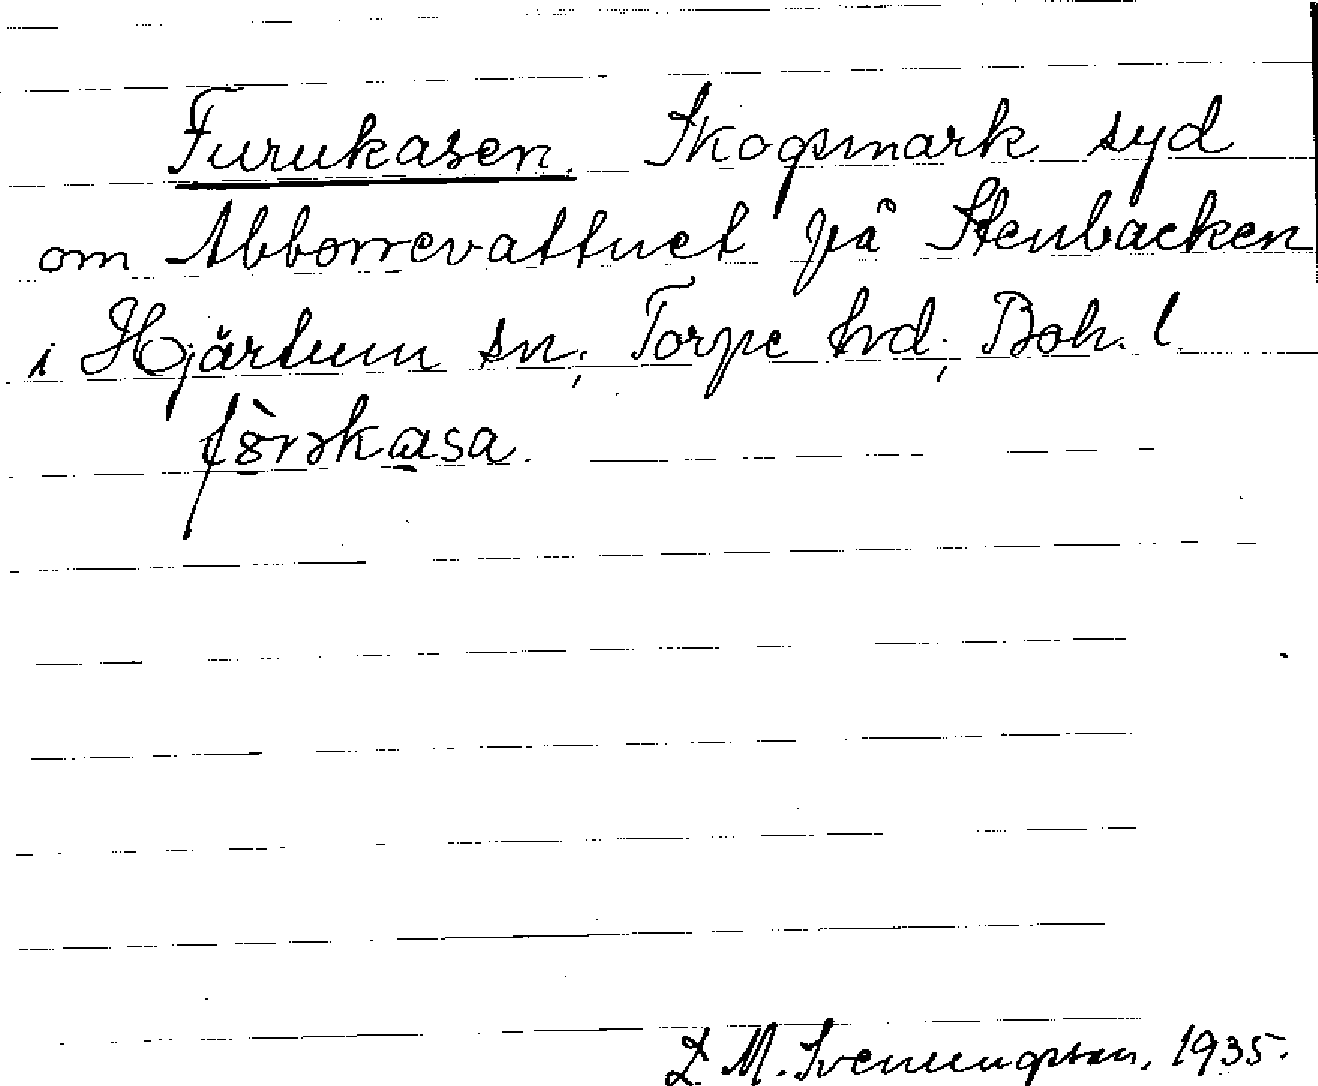 Furukasen. Skogsmark syd
om Abborrevattnet på Stenbacken
i Hjärtum sn; Torpe hrd; Boh. l.
fòrəkasa.
L. M. Svenungsson, 1935.